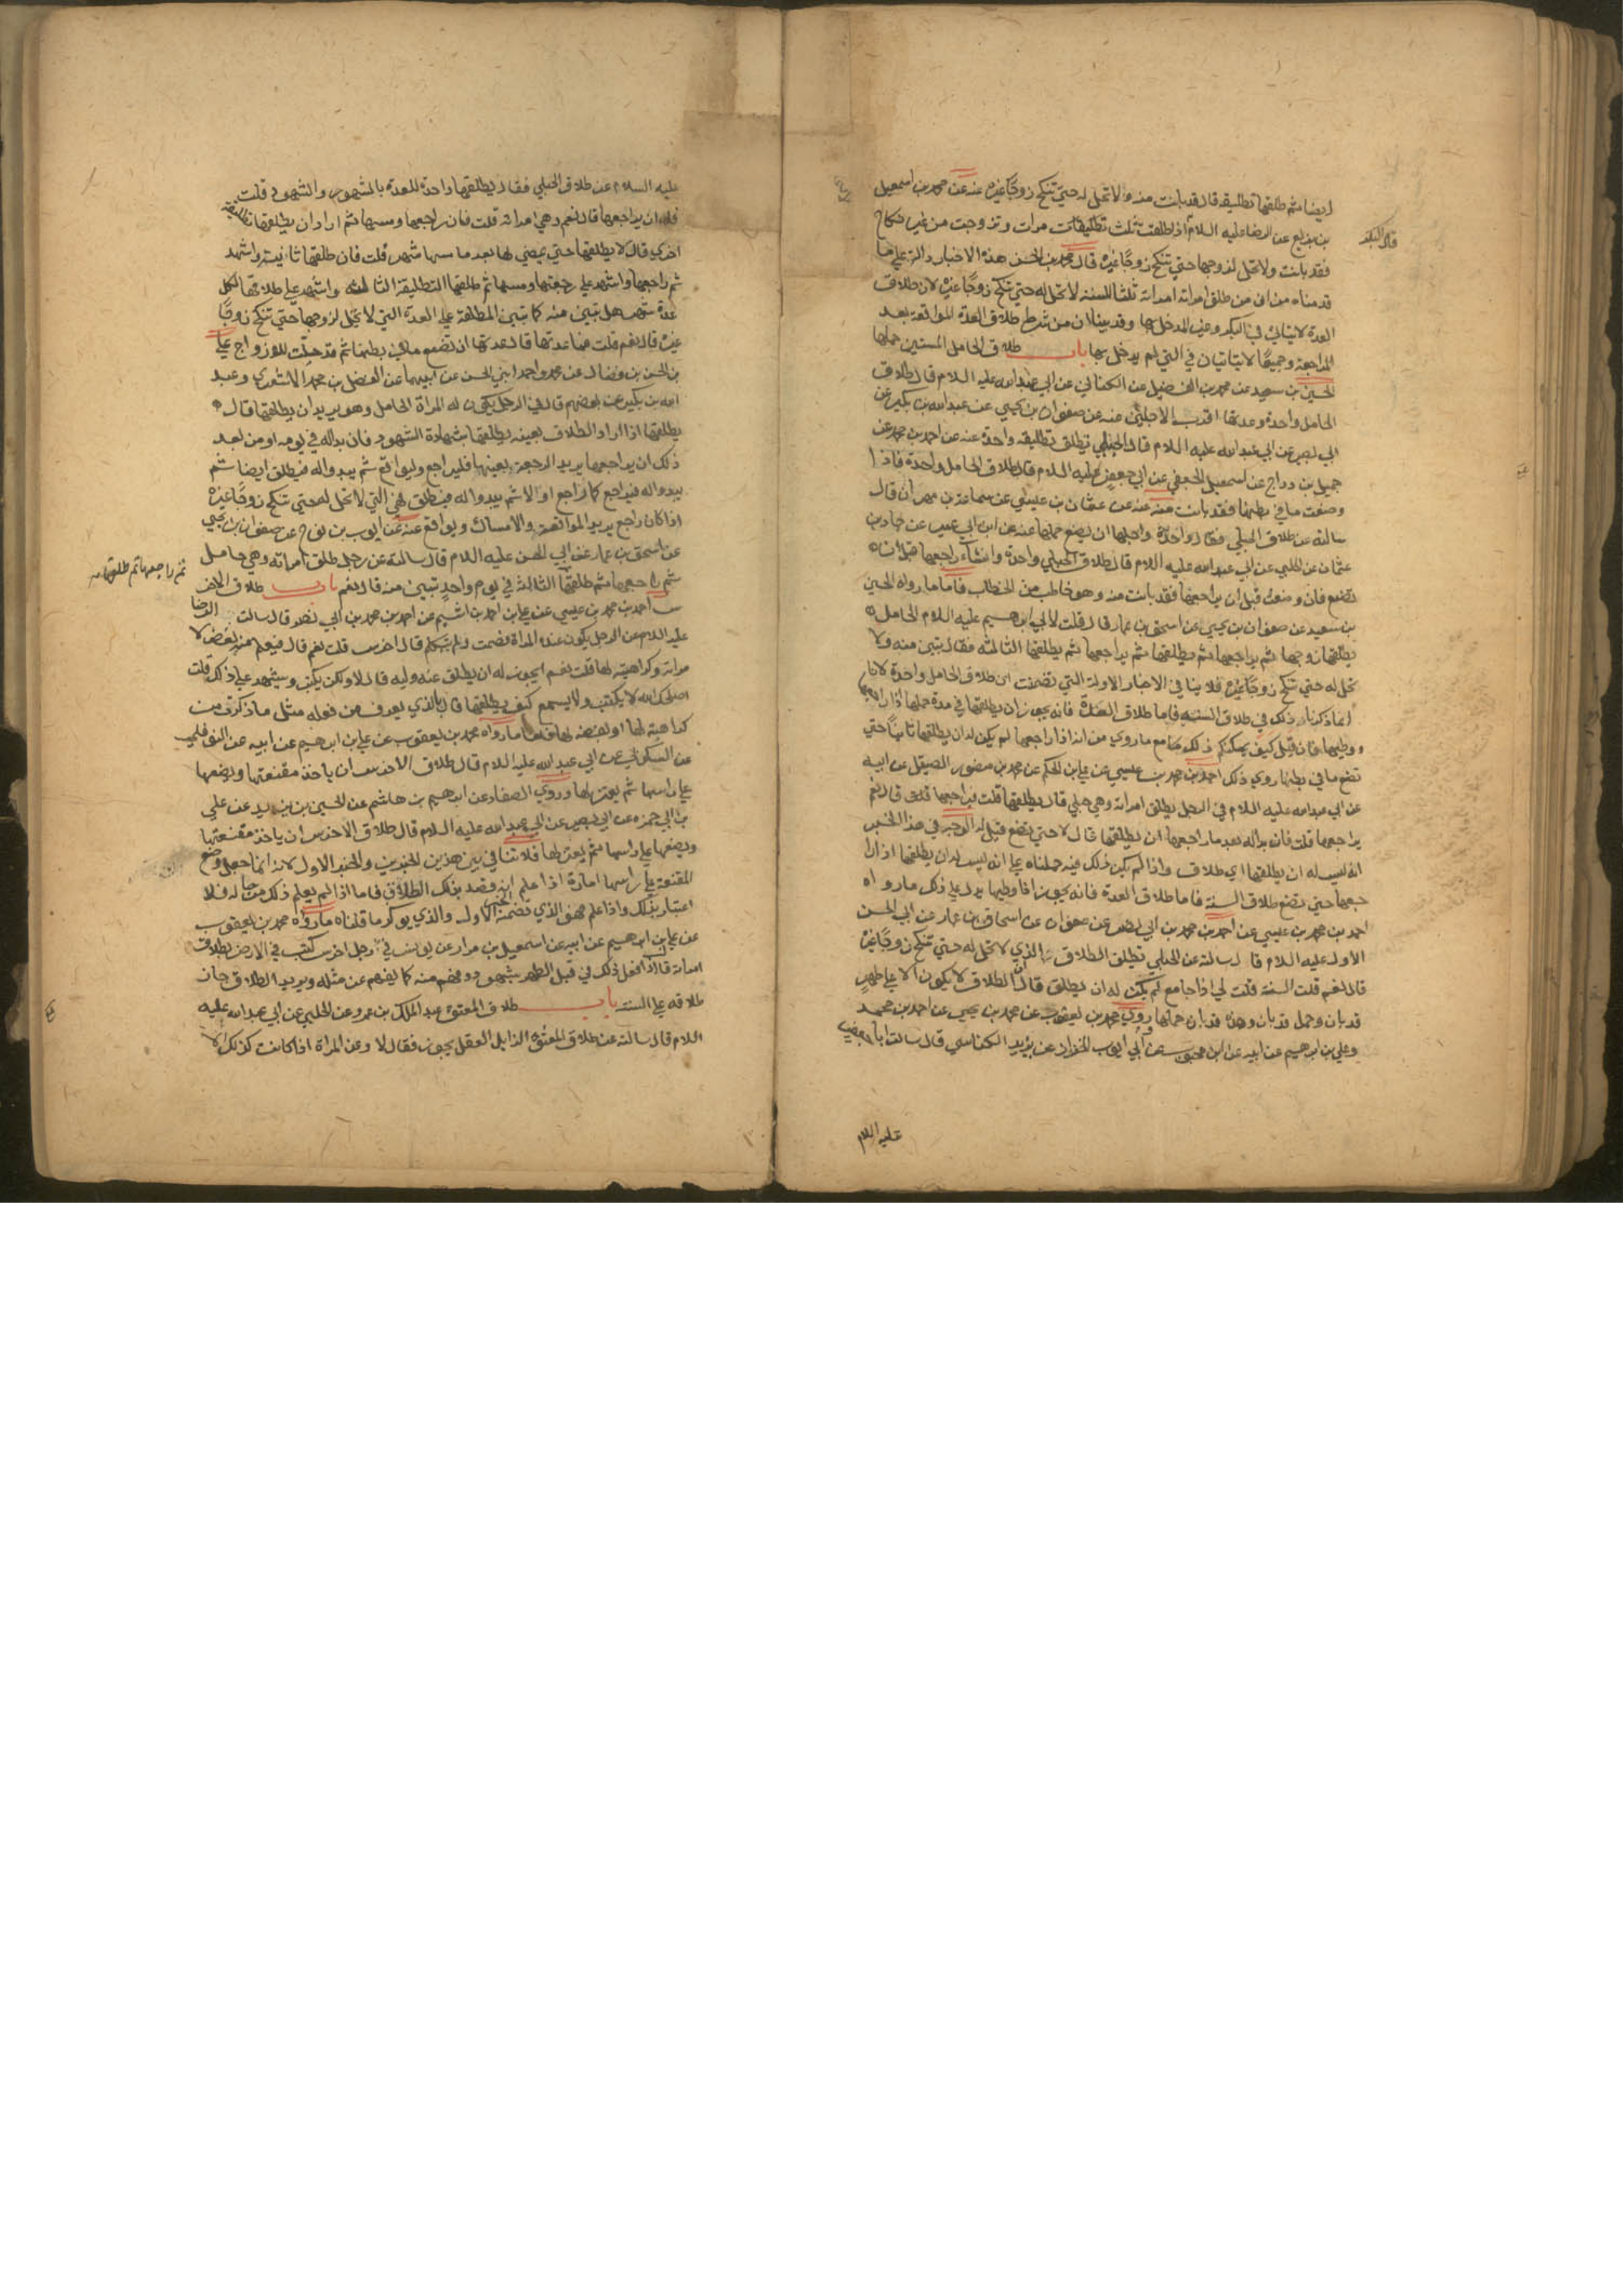 ايضا ثم طلقها تطليقة قال قد بانت منه ولا تحل له حتى تنكح زوجا غيره عنه عن محمد بن اسمعيل
بن بزيع عن الرضا عليه السلام اذا طلقت ثلث تطليقات مرات وتزوجت من غير نكاح
قال البكر
فقد بانت ولا تحل لزوجها حتى تنكح زوجا غيره قال محمد بن الحسن هذه الاخبار دالة على ما
قدمناه من ان من طلق امراته ثلثا للسنة لا تحل له حتى تنكح زوجا غيره لان طلاق
العدة لا يتاتى في البكر وغير المدخل بها وقد بينا ان من شرط طلاق العدة المواقعة بعد
المراجعة وجميعا لا يتاتيان في التي لم يدخل بها باب طلاق الحامل المستبين حملها
الحسين بن سعيد عن محمد بن الفضيل عن الكناني عن ابي عبد الله عليه السلام قال طلاق
الحامل واحدة وعدتها اقرب الاجلين عنه عن صفوان بن يحيى عن عبد الله بن بكير عن
ابي بصير عن ابي عبد الله عليه السلام قال الحبلى تطلق تطليقة واحدة عنه عن احمد بن محمد عن
جميل بن دراج عن اسمعيل الجعفي عن ابي جعفر عليه السلام قال طلاق الحامل واحدة فاذا
وضعت ما في بطنها فقد بانت منه عنه عن عثمان بن عيسى عن سماعة بن مهران قال
سالته عن طلاق الحبلى فقال واحدة واجلها ان يضع حملها عنه عن ابن ابي عمير عن حماد بن
عثمان عن الحلبي عن ابي عبد الله عليه السلام قال طلاق الحبلى واحدة وان شاء راجعها قبل ان
تضع فان وضعت قبل ان يراجعها فقد بانت منه وهو خاطب من الخطاب فاما ما رواه الحسين
بن سعيد عن صفوان بن يحيى عن اسحق بن عمار قال قلت لابي ابرهيم عليه السلام الحامل
يطلقها زوجها ثم يراجعها ثم يطلقها ثم يراجعها ثم يطلقها الثالثة فقال تبين منه ولا
تحل له حتى تنكح زوجا غيره فلا ينافي الاخبار الاولة التي تضمنت ان طلاق الحامل واحدة لانا
انما ذكرنا ذلك في طلاق السنة فاما طلاق العدة فانه يجوز ان يطلقها في مدة حملها اذا راجعها
ووطيها فان قيل كيف يمكنكم ذلك مع ما روي من انه اذا راجعها لم يكن له ان يطلقها ثانيا حتى
تضع ما في بطنها روي ذلك احمد بن محمد بن عيسى عن علي بن الحكم عن محمد بن منصور الصيقل عن ابيه
عن ابي عبد الله عليه السلام في الرجل يطلق امراته وهي حبلى قال يطلقها قلت فيراجعها قال نعم
يراجعها قلت فان بدا له بعد ما راجعها ان يطلقها قال لا حتى تضع قيل له الوجه في هذا الخبر
انه ليس له ان يطلقها اي طلاق واذا لم يكن ذلك فيه حملناه على انه ليس له ان يطلقها اذا را
جعها حتى تضع طلاق السنة فاما طلاق العدة فانه يجوز اذا وطيها يدل على ذلك ما رواه
احمد بن محمد بن عيسى عن احمد بن محمد بن ابي نصر عن صفوان عن اسحاق بن عمار عن ابي الحسن
الاول عليه السلام قال سالته عن الحبلى تطلق الطلاق الذي لا تحل له حتى تنكح زوجا غيره
قال نعم قلت الست قلت لي اذا جامع لم يكن له ان يطلق قال ان الطلاق لا يكون الا على طهر
قد بان وحمل قد بان وهذه قد بان حملها روي محمد بن يعقوب عن محمد بن يحيى عن احمد بن محمد
وعلي بن ابرهيم عن ابيه عن ابن محبوب عن ابي ايوب الخزاز عن يزيد الكناسي قال سالت ابا جعفر
عليه السلام
عليه السلام عن طلاق الحبلى فقال يطلقها واحدة للعدة بالشهور والشهود قلت
فله ان يراجعها قال نعم وهي امراته قلت فان راجعها ومسها ثم اراد ان يطلقها تطليقة
اخرى قال لا يطلقها حتى يمضي لها بعد ما مسها شهر قلت فان طلقها ثانية واشهد
ثم راجعها واشهد على رجعتها ومسها ثم طلقها التطليقة الثالثة واشهد على طلاقها لكل
عدة شهر هل تبين منه كما تبين المطلقة على العدة التي لا تحل لزوجها حتى تنكح زوجا
غيره قال نعم قلت فما عدتها قال عدتها ان تضع ما في بطنها ثم قد حلت للازواج علي
بن الحسن بن فضال عن محمد واحمد ابني الحسن عن ابيهما عن الفضل بن محمد الاشعري وعبد
الله بن بكير عن بعضهم قال في الرجل يكون له المراة الحامل وهو يريد ان يطلقها قال
يطلقها اذا اراد الطلاق بعينه يطلقها بشهادة الشهود فان بدا له في يومه او من بعد
ذلك ان يراجعها يريد الرجعة بعينها فليراجع وليواقع ثم يبدو له فيطلق ايضا ثم
يبدو له فيراجع كما راجع اولا ثم يبدو له فيطلق فهي التي لا تحل له حتى تنكح زوجا غيره
اذا كان راجع يريد المواقعة والامساك ويواقع عنه عن ايوب بن نوح عن صفوان بن يحيى
عن اسحق بن عمار عن ابي الحسن عليه السلام قال سالته عن رجل طلق امراته وهي حامل
ثم راجعها ثم طلقها
ثم راجعها ثم طلقها الثالثة في يوم واحد تبين منه قال نعم باب طلاق الاخر
س احمد بن محمد بن عيسى عن علي بن احمد بن اشيم عن احمد بن محمد بن ابي نصر قال سالت الرضا
عليه السلام عن الرجل يكون عنده المراة يصمت ولم يتكلم قال اخرس قلت نعم قال فيعلم منه بغض لا
مراته وكراهيته لها قلت نعم ايجوز له ان يطلق عنه وليه قال لا ولكن يكتب ويشهد على ذلك قلت
اصلحك الله لا يكتب ولا يسمع كيف يطلقها قال بالذي يعرف من فعله مثل ما ذكرت من
كراهيته لها او بغضه لها فاما ما رواه محمد بن يعقوب عن علي بن ابرهيم عن ابيه عن النوفلي
عن السكوني عن ابي عبد الله عليه السلام قال طلاق الاخرس ان ياخذ مقنعتها ويضعها
على راسها ثم يعتزلها وروى الصفار عن ابرهيم بن هاشم عن الحسين بن يزيد عن علي
بن ابي حمزه عن ابي بصير عن ابي عبد الله عليه السلام قال طلاق الاخرس ان ياخذ مقنعتها
ويضعها على راسها ثم يعتزلها فلا تنافي بين هذين الخبرين والخبر الاول لانه انما جعل وضع
المقنعة على راسها امارة اذا علم انه قصد بذلك الطلاق فاما اذا لم يعلم ذلك من حاله فلا
اعتبار بذلك واذا علم فهو الذي تضمنه الخبر الاول والذي يوكد ما قلناه ما رواه محمد بن يعقوب
عن علي بن ابرهيم عن ابيه عن اسمعيل بن مرار عن يونس في رجل اخرس كتب في الارض بطلاق
امراته قال اذا فعل ذلك في قبل الطهر بشهود وفهم منه كما يفهم عن مثله ويريد الطلاق جاز
طلاقه على السنة باب طلاق المعتوه عبد الملك بن عمرو عن الحلبي عن ابي عبد الله عليه
السلام قال سالته عن طلاق المعتوه الزايل العقل يجوز فقال لا وعن المراة اذا كانت كذلك